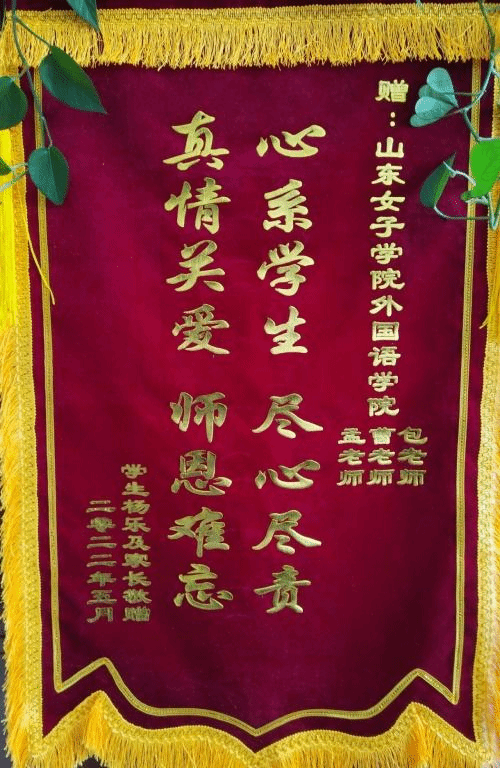 赠：山东女子学院外国语学院
包老师
曹老师
孟老师
心系学生 尽心尽责
真情关爱 师恩难忘
学生杨乐及家长敬赠
二零二二年五月